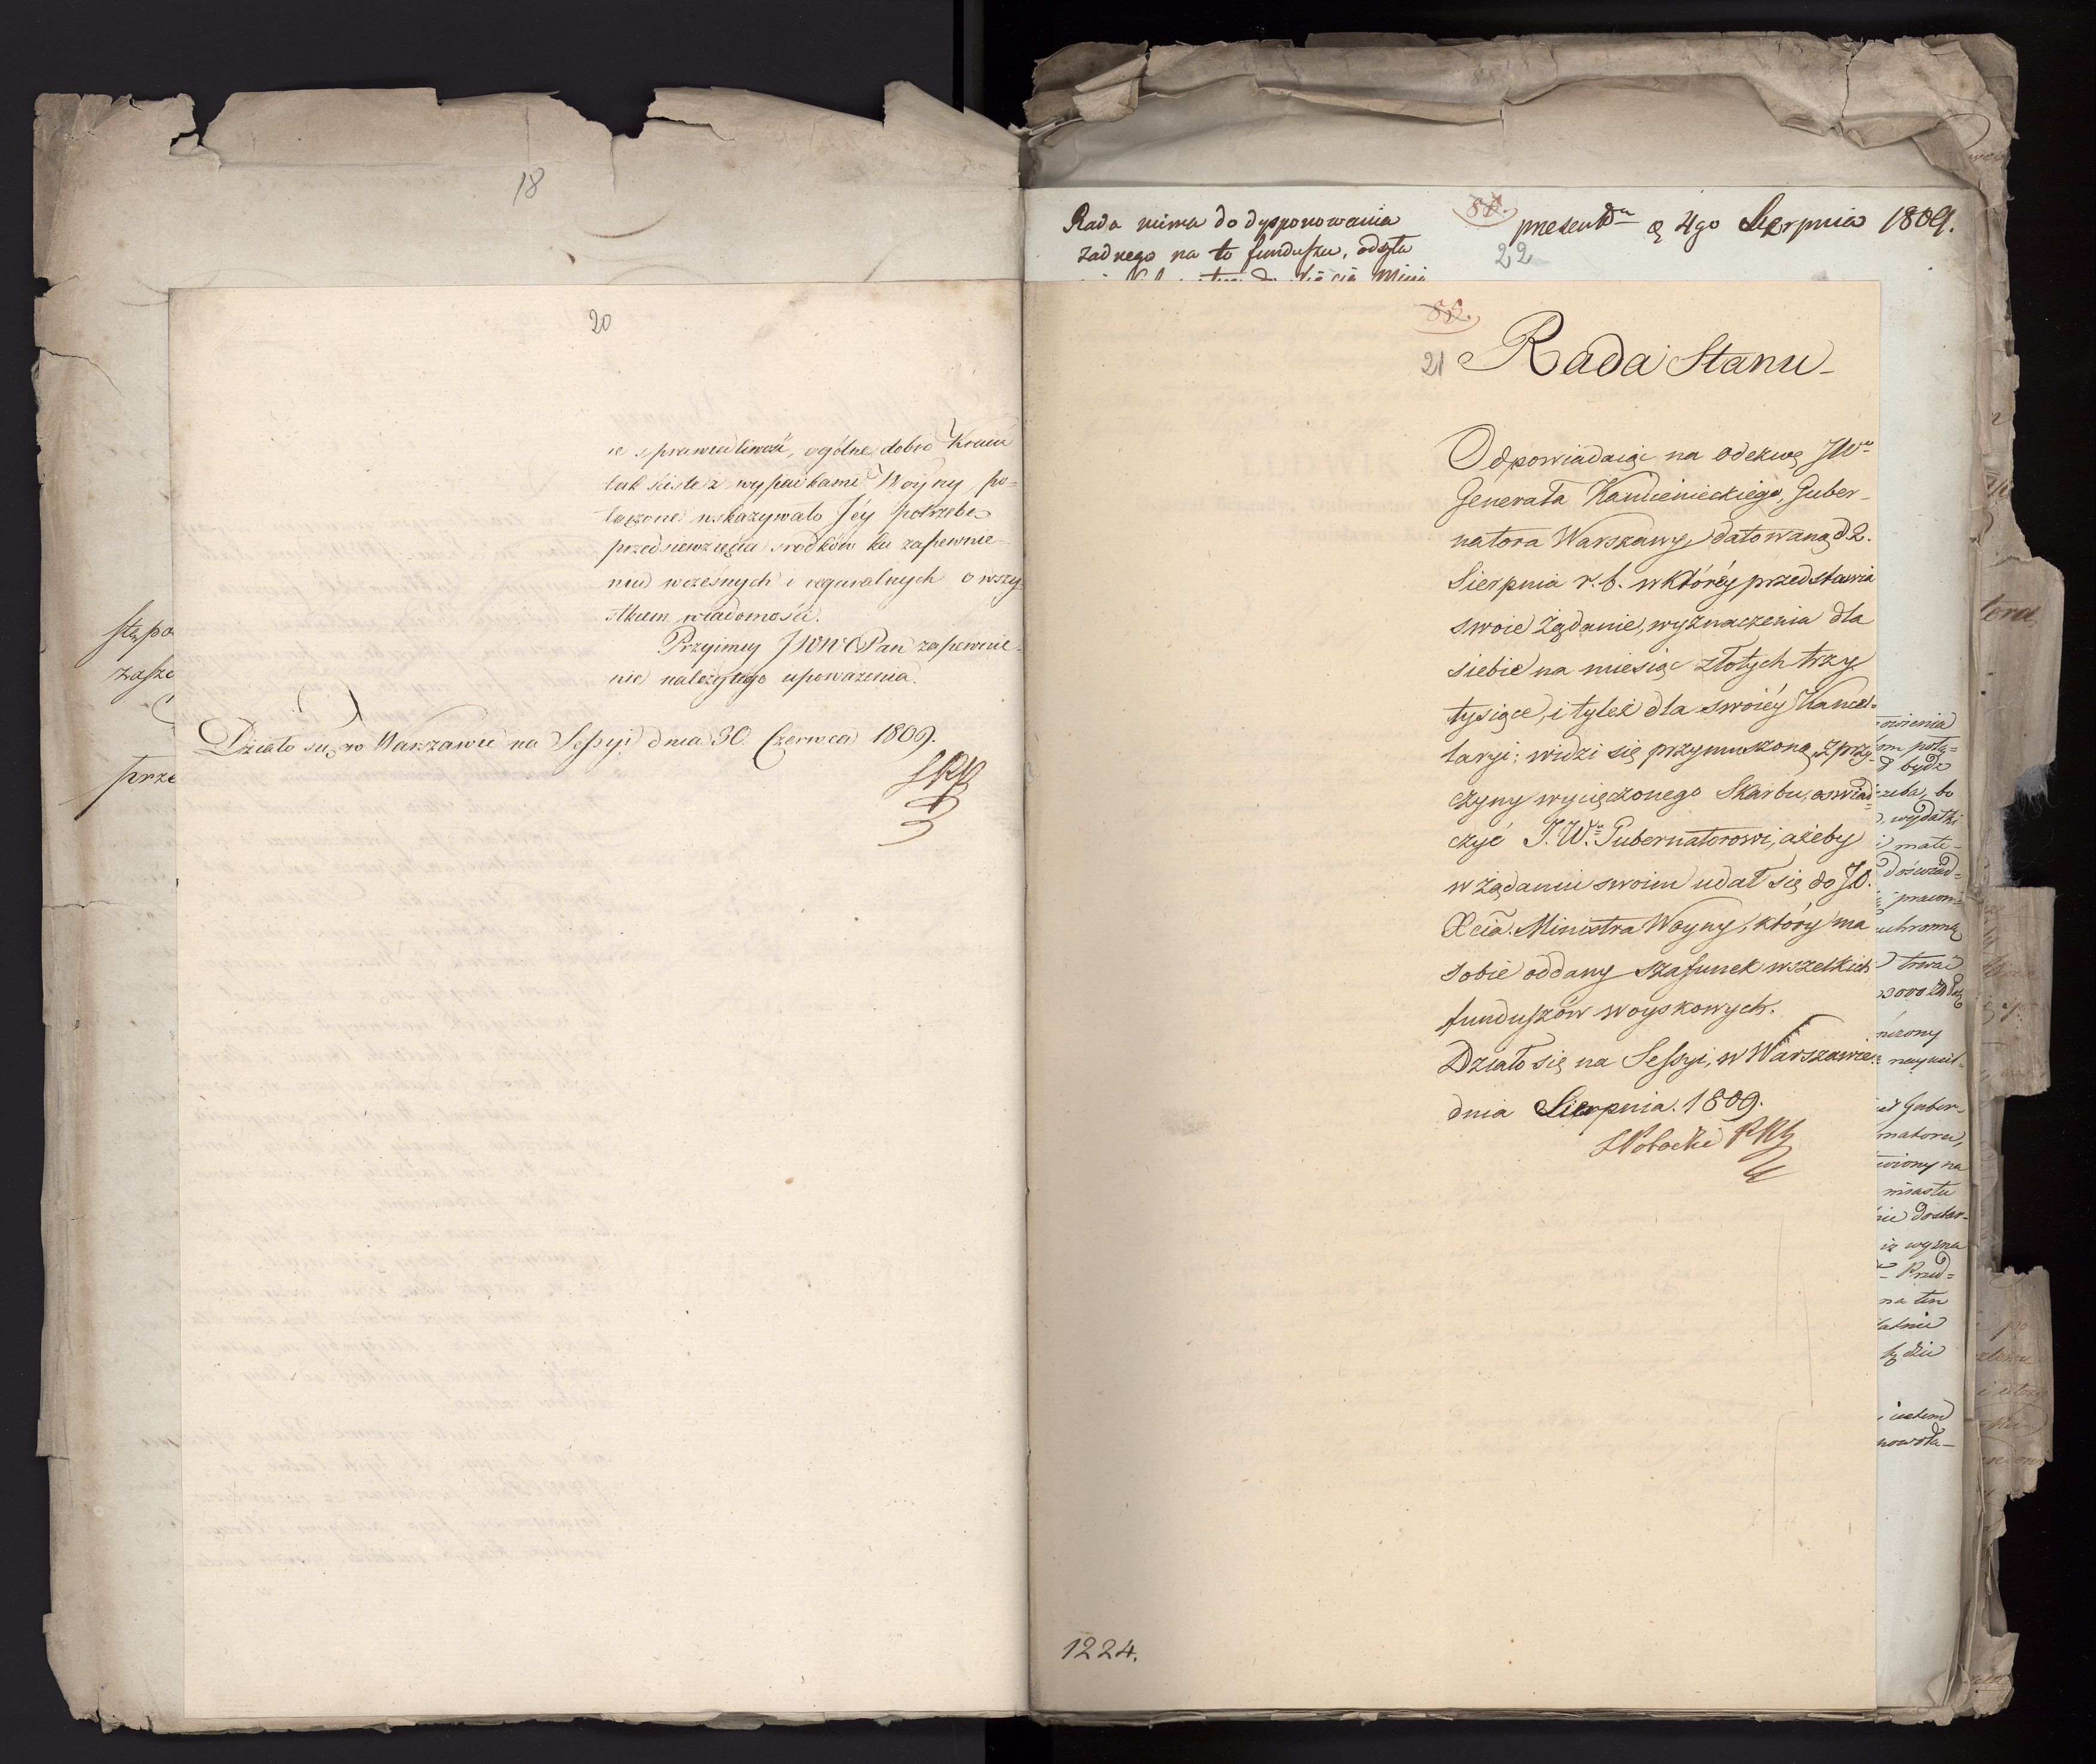 18
20
ie sprawiedliwość, ogólne dobro Kraiu
tak ściśle z wypadkami Woyny po=
łączone wskazywało Jéy potrzebę
przedsiewzięcia srodków ku zapewnie=
niu wczesnych i regularnych o wszy=
stkiem wiadomości.
Przyimiy JWWPan zapewnie=
nie należytego upoważenia.
Działo się w Warszawie na Sessyi dnia 30 Czerwca 1809.
stępo
zaszc
prze
Rada nima do dysponowania
żadnego na to funduszu, odsyła
80.
22
4go Sierpnia 1809.
82.
21
Rada Stanu
Odpowiadaiąc na odezwę JWo
Generała Kamienieckiego, Guber=
natora Warszawy datowaną d. 2.
Sierpnia r. b. w któréy przedstawia
swoie żądanie, wyznaczenia dla
siebie na miesiąc złotych trzy
tysiące, i tyleż dla swoiéy Kancel=
laryi; widzi się przymuszoną, z przy=
czyny wycięczonego Skarbu, oświad=
czyć J.Wu Gubernatorowi, ażeby
w żądaniu swoim udał się do J.O.
Xcia Ministra Woyny, który ma
sobie oddany szafunek wszelkich
funduszów woyskowych.
Działo się na Sessyi, w Warszawie
dnia Sierpnia. 1809.
SPotocki
1224.
om połą=
d bydź
zeba, bo
wydatki
i mate=
doświad=
uchronną
trwać
niczony
Guber=
natora,
wiony na
miastu
nie dostar=
iż wyzna
Pred=
na ten
będzie
nowoła=